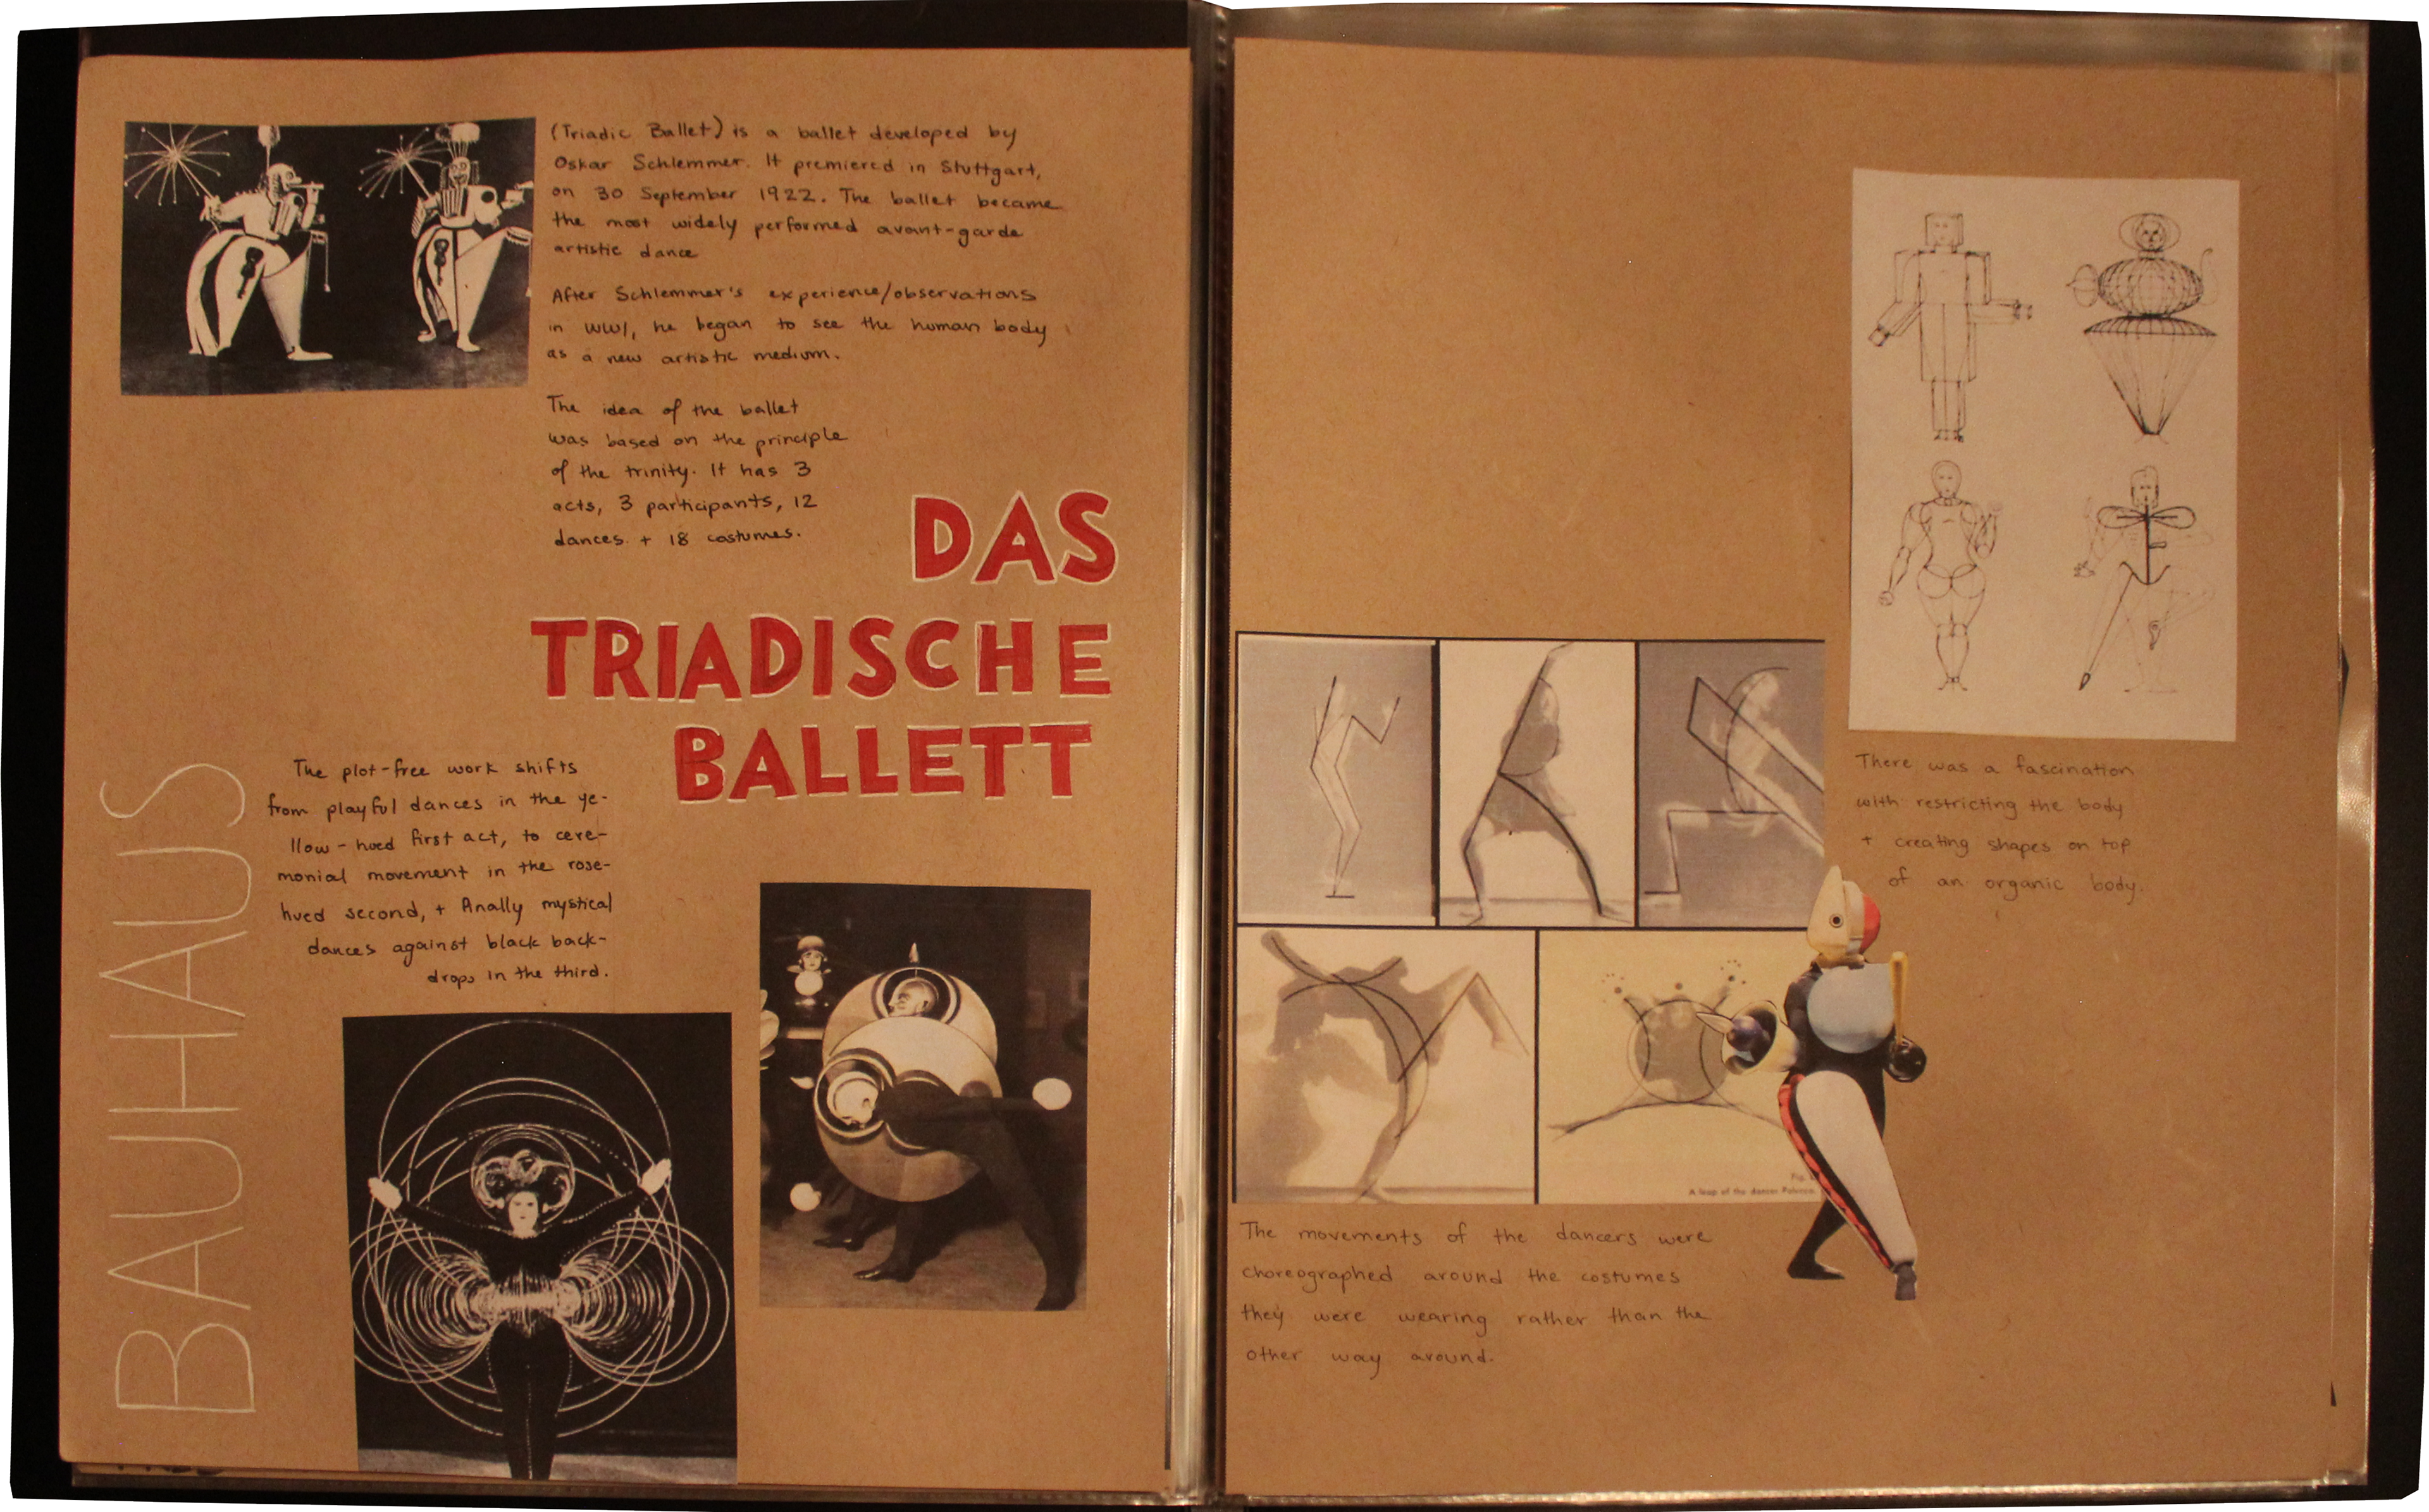 (Triadic Ballet) is a ballet developed by
Oskar Schlemmer. It premiered in Stuttgart,
on 30 September 1922. The ballet became
the most widely performed avant-garde
artistic dance
After Schlemmer's experience/observations
in WWI, he began to see the human body
as a new artistic medium.
The idea of the ballet
was based on the principle
of the trinity. It has 3
acts, 3 participants, 12
dances + 18 costumes.
DAS
TRIADISCHE
BALLETT
BAUHAUS
The plot-free work shifts
from playful dances in the ye-
llow-hued first act, to cere-
monial movement in the rose-
hued second, + finally mystical
dances against black back-
drops in the third.
There was a fascination
with restricting the body
+ creating shapes on top
of an organic body.
Fig.
A leap of the dancer Palucca.
The movements of the dancers were
choreographed around the costumes
they were wearing rather than the
other way around.